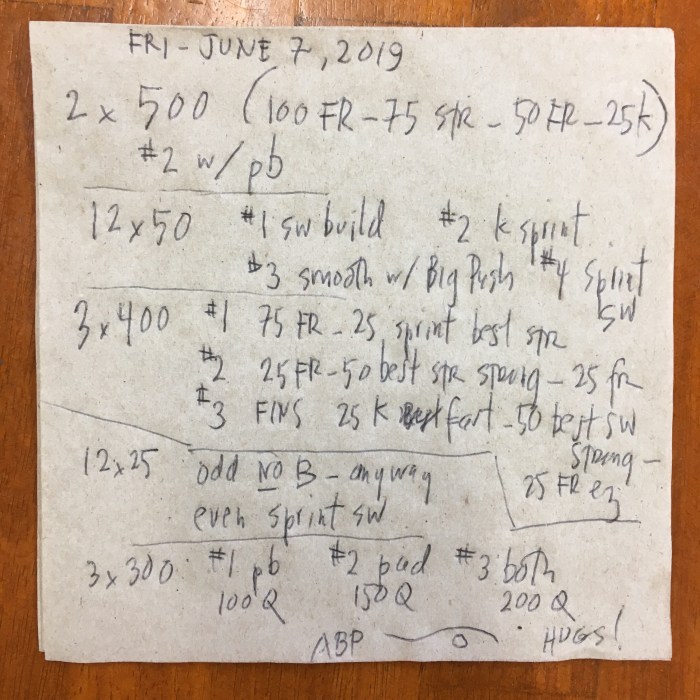 FRI - JUNE 7, 2019
2 x 500 (100 FR - 75 STR - 50 FR - 25K)
#2 w/ pb
12 x 50 #1 sw build #2 k sprint
#3 smooth w/ Big Push #4 sprint
sw
3 x 400 #1 75 FR - 25 sprint best str
#2 25 FR - 50 best str strong - 25 fr
#3 FINS 25 K fast - 50 best sw
strong -
25 FR ez
12 x 25 odd NO B - anyway
even sprint sw
3 x 300 #1 pb #2 pad #3 both
100 Q 150 Q 200 Q
ABP HUGS!